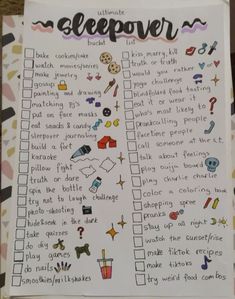 ultimate
sleepover
bucket list
bake cookies/cake
watch movies/series
make jewelry
gossip
painting and drawing
matching pj's
put on face masks
eat snacks & candy
sleepover journaling
build a fort
karaoke
pillow fight
truth or dare
spin the bottle
try not to laugh challenge
photo-shooting
hide & seek in the dark
take quizzes
do diy
play games
do nails
smoothies/milkshakes
kiss, marry, kill
truth or truth
would you rather
yoga challenge
blindfolded food tasting
eat it or wear it
who's most likely to
prankcalling people
facetime people
call someone at the
talk about feelings
play ouija board
play charlie charlie
color a coloring book
shopping spree
pranks
stay up all night
watch the sunset/rise
make tiktok recipes
make tiktoks
try weird food combos